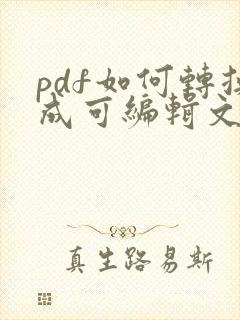 pdf如何轉換
成可編輯文
真生路易斯